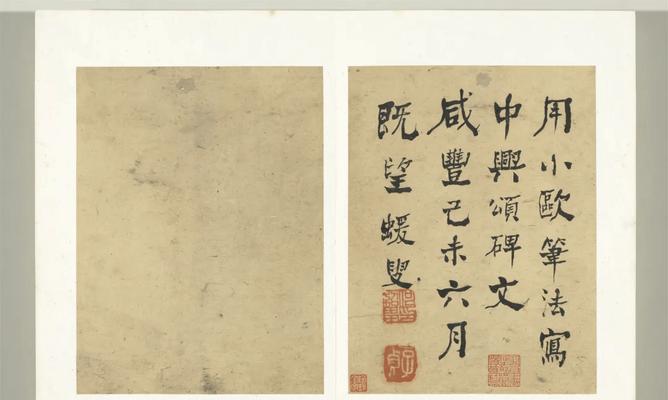 用小歐筆法寫
中興頌碑文
咸豐己未六月
既望蝯叟
子貞